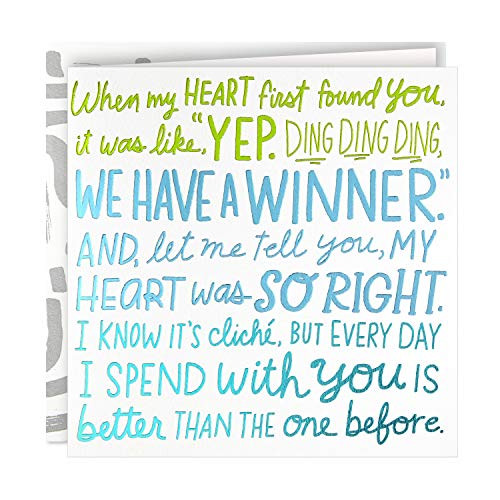 When my HEART first found You,
it was like, "YEP. DING DING DING,
WE HAVE A WINNER."
AND, let me tell you, MY
HEART was SO RIGHT.
I KNOW IT'S cliché, BUT EVERY DAY
I SPEND with You IS
better THAN THE one before.